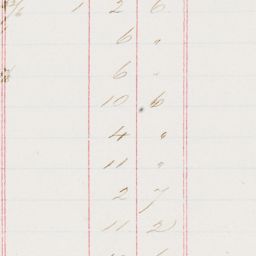 1 2 6
6 "
6 "
10 6
4 "
11 "
2 7
11 2